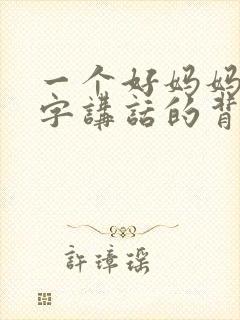 一个好妈妈
字講話的背
許璋瑶